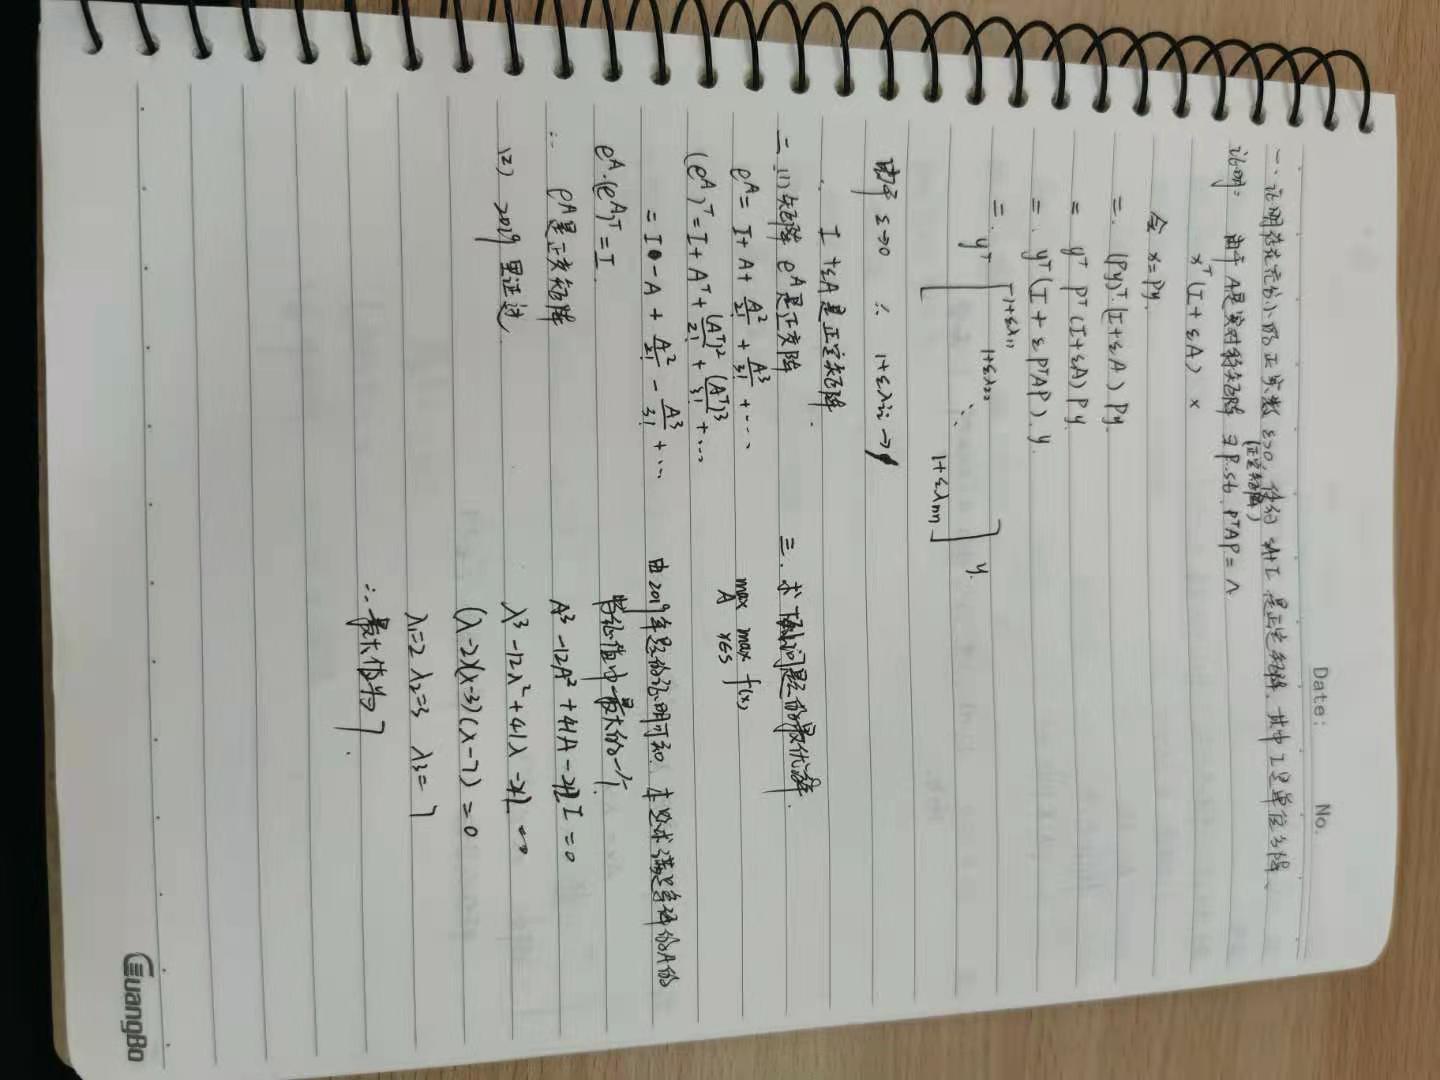 Date: No.
一. 证明存在充分小的正实数 ε>0, 使得 εA+I 是正定矩阵, 其中 I 是单位矩阵.
(正定矩阵)
证明: 由于 A是实对称矩阵 ∃ P. st. PᵀAP = Λ
xᵀ(I+εA) x
令 x=Py.
=. (Py)ᵀ(I+εA) Py.
= yᵀ Pᵀ(I+εA) P y.
= . yᵀ(I + ε PᵀAP). y.
=. yᵀ [ 1+ελ₁₁ 1+ελ₂₂ ⋱ 1+ελnn ] y.
由于 ε→0 ∴ 1+ελii →1
∴ I +εA是正定矩阵.
二 (1) 矩阵 eᴬ是正交阵
eᴬ = I+ A+ A²/2! + A³/3! + ⋯
(eᴬ)ᵀ = I+ Aᵀ + (Aᵀ)²/2! + (Aᵀ)³/3! + ⋯
= I - A + A²/2! - A³/3! + ⋯
eᴬ·(eᴬ)ᵀ = I.
∴ eᴬ是正交矩阵
(2) 2019 里证过.
三. 求 问题的最优解.
max A max x∈S f(x)
由2019年题的证明可知, 本题求满足条件的A的
特征值中最大的一个.
A³ -12A² + 41A - 42I = 0
λ³ -12λ² + 41λ - 42 =0
(λ-2)(λ-3)(λ-7) = 0
λ₁=2 λ₂=3 λ₃= 7
∴ 最大值为7.
GuangBo